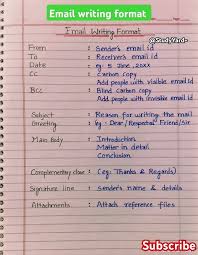 Email writing format
Email Writing Format
@StudyYard-
From : Sender's email id
To : Receiver's email id
Date : eg. 5 June, 20XX
CC : Carbon copy
Add people with visible email id
Bcc : Blind carbon copy
Add people with invisible email id
Subject : Reason for writing the mail
Greeting : eg - Dear / Respected Friend/Sir
Main Body : Introduction
Matter in detail
Conclusion.
Complementary close : (eg: Thanks & Regards)
Signature line : Sender's name & details
Attachments : Attach reference files
Subscribe